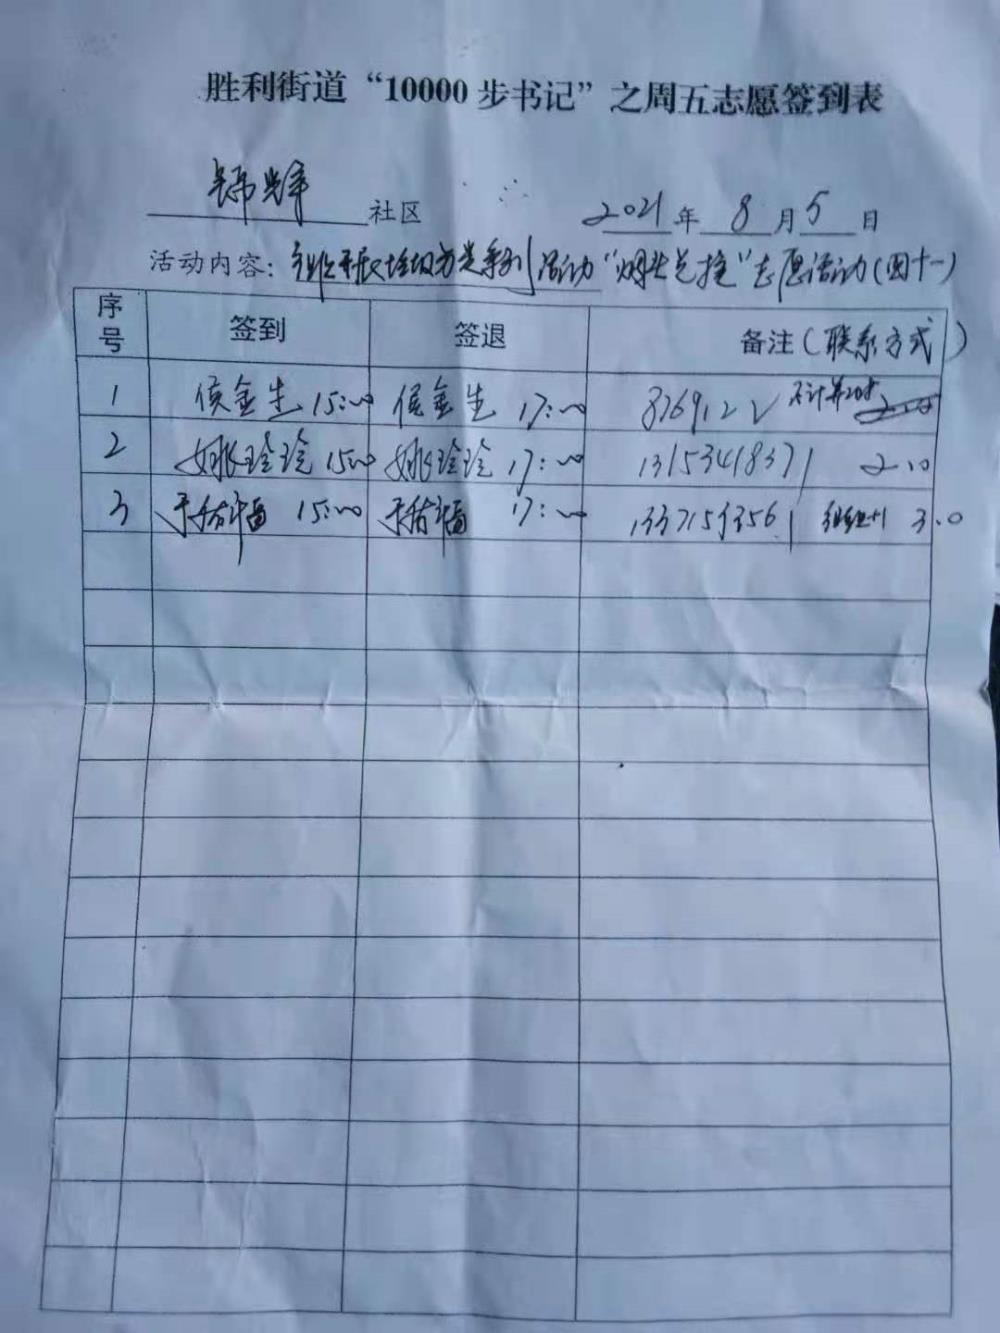 胜利街道“10000步书记”之周五志愿签到表
社区 2021年8月5日
活动内容：开展垃圾分类系列活动“烟头兑换”志愿活动（四十一）
序号 签到 签退 备注（联系方式）
1 侯金生 15:00 侯金生 17:00 8269122 不计算时长
2 姚玲玲 15:00 姚玲玲 17:00 13153418371 2.0
3 15:00 17:00 3.0